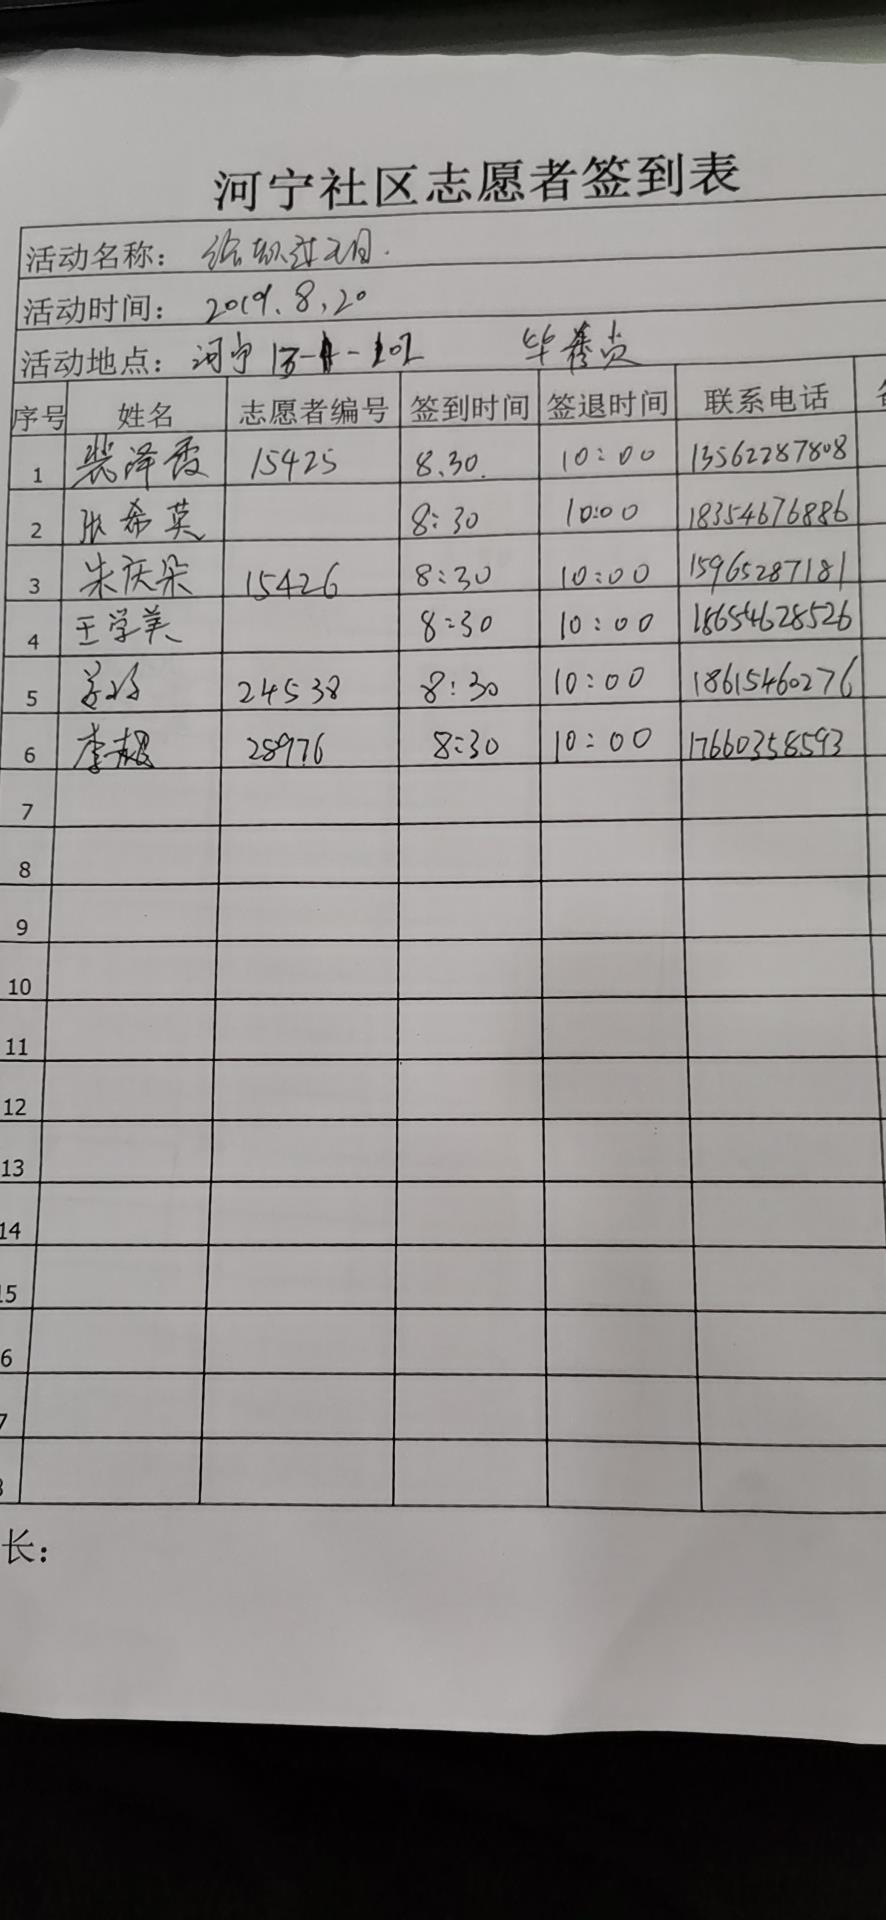 河宁社区志愿者签到表
活动名称：
活动时间：2019.8.20
活动地点：河宁 13-1-102 毕秀贞
序号 姓名 志愿者编号 签到时间 签退时间 联系电话
1 裴泽霞 15425 8.30 10:00 13562287808
2 张希英 8:30 10:00 18354676886
3 朱庆朵 15426 8:30 10:00 15965287181
4 王学美 8:30 10:00 18654628526
5 24538 8:30 10:00 18615460276
6 李 28976 8:30 10:00 17660358593
7
8
9
10
11
12
13
14
15
6
7
长：